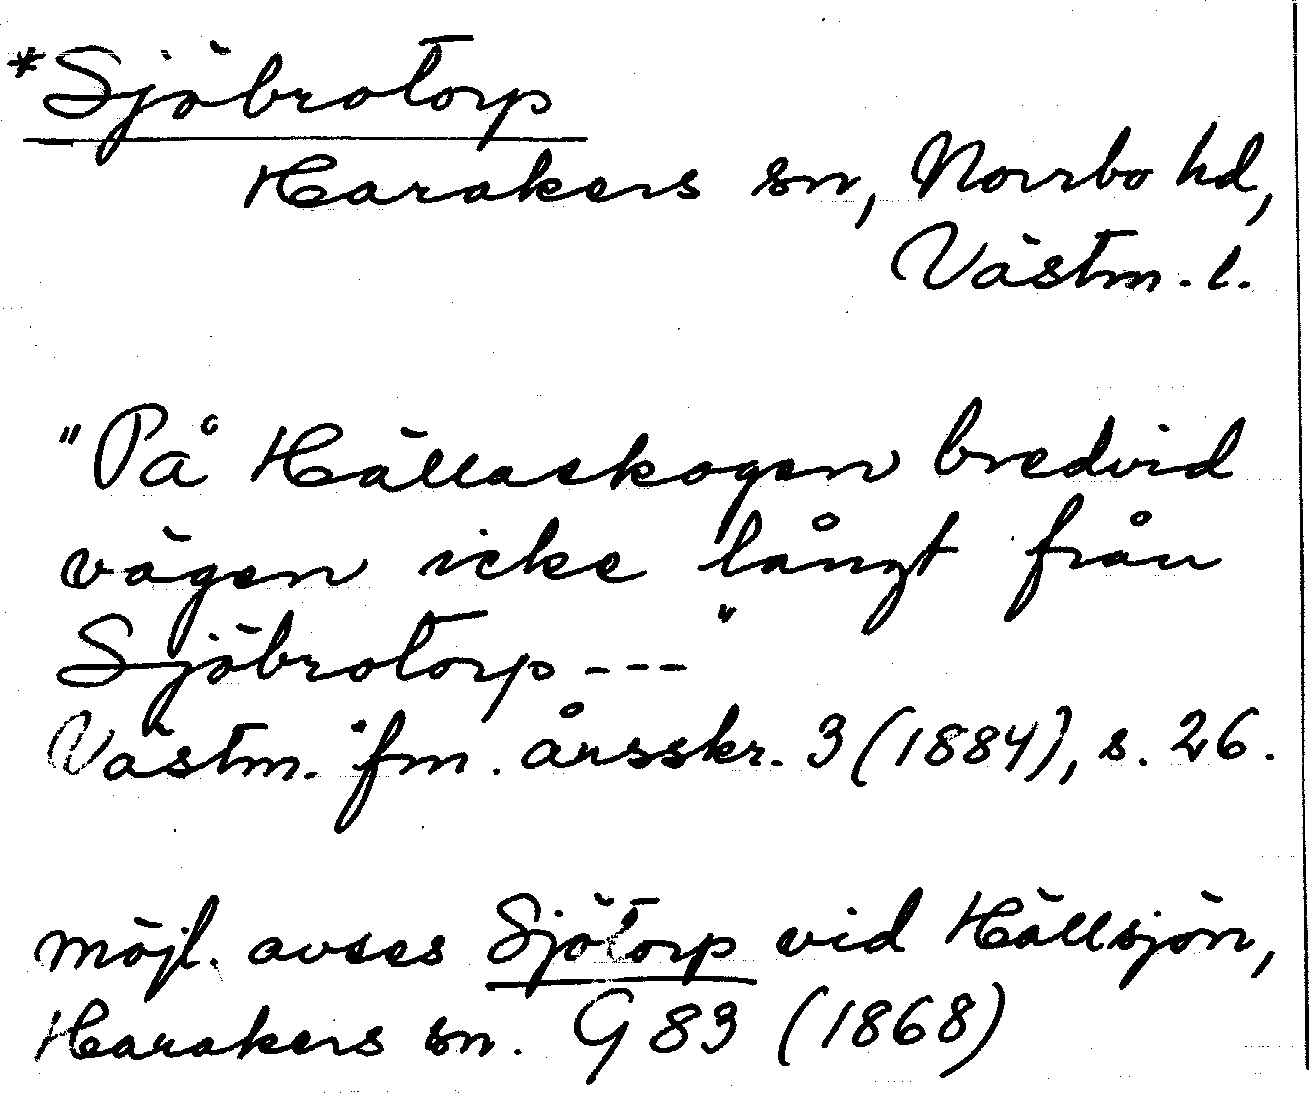 *Sjöbrotorp
Harakers sn, Norrbo hd,
Västm. l.
"På Hällaskogen bredvid
vägen icke långt från
Sjöbrotorp ---"
Västm. fm. årsskr. 3 (1884), s. 26.
möjl. avses Sjötorp vid Hällsjön,
Harakers sn. G 83 (1868)